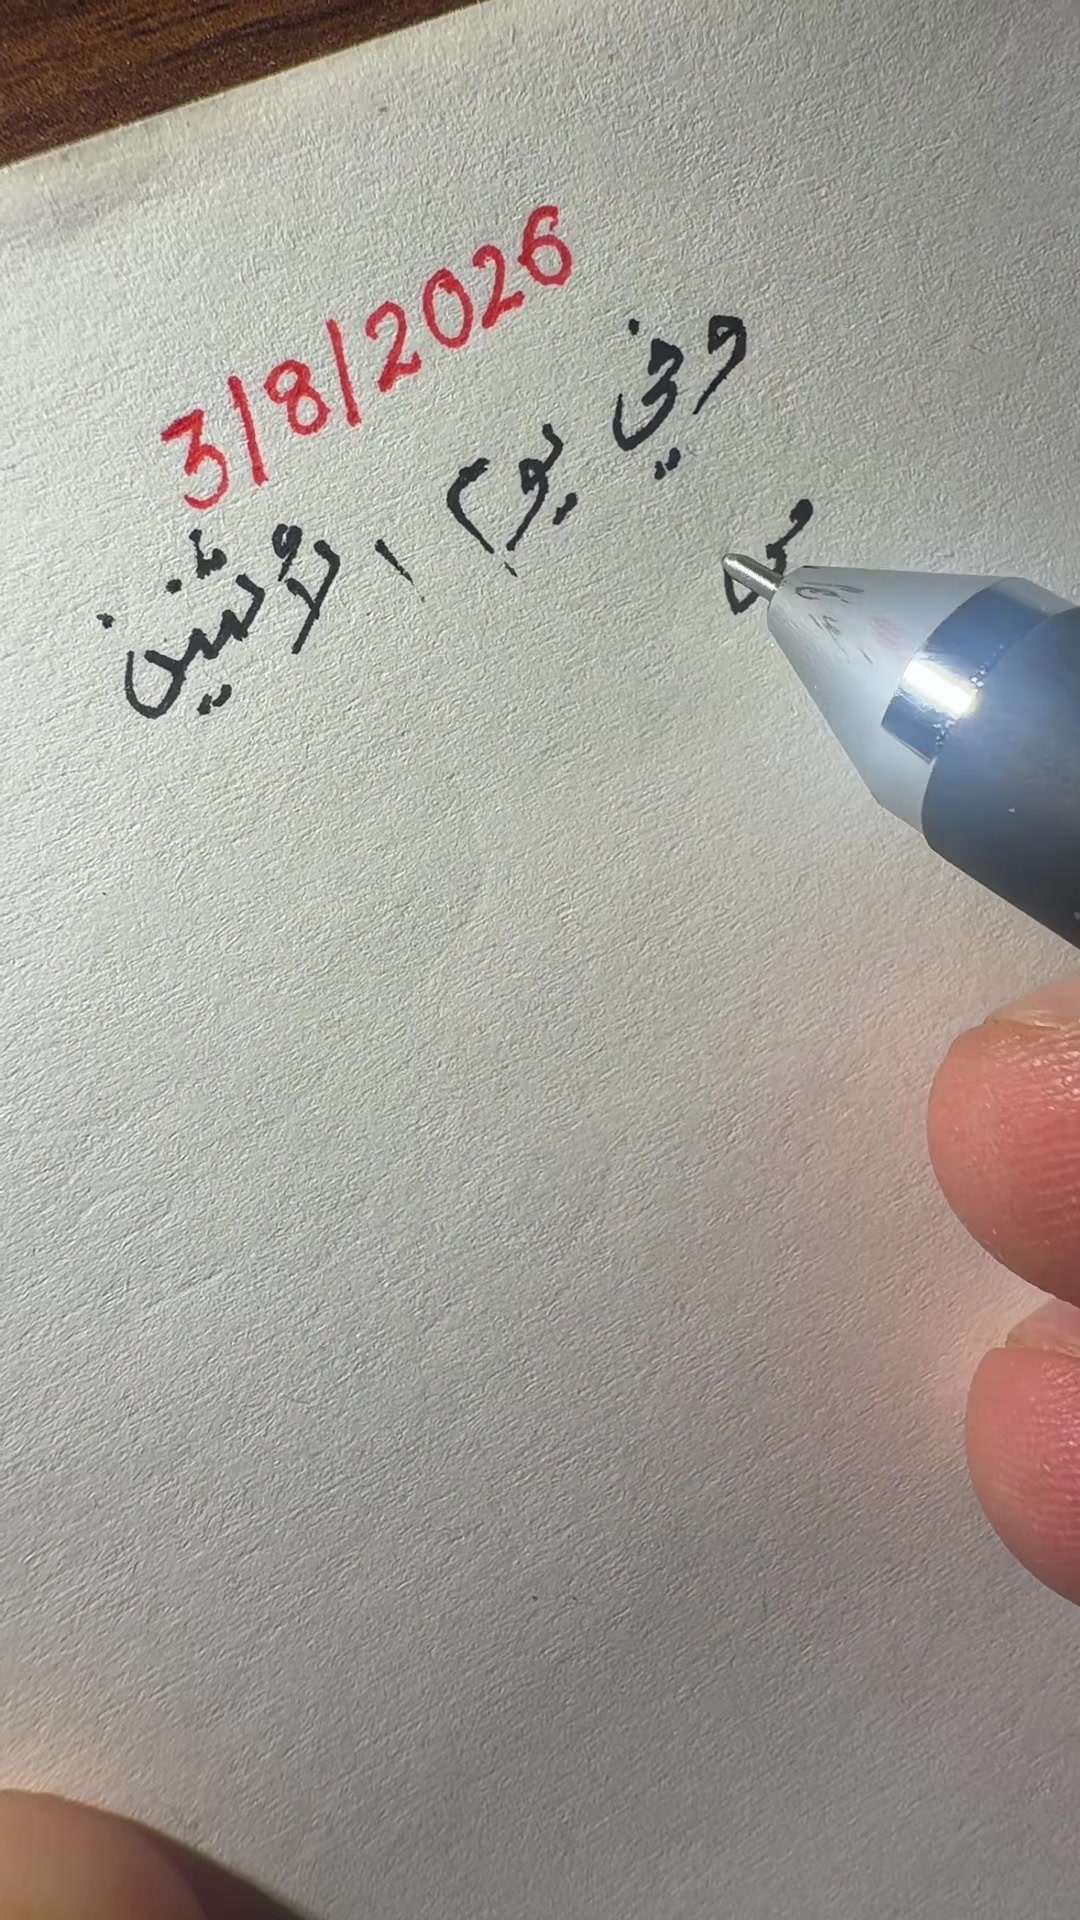 3/8/2026
وفي يوم الأثنين